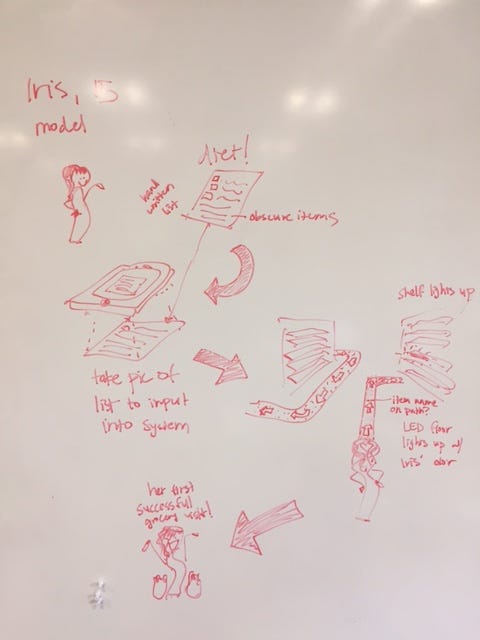 Iris, 15
model
diet!
hand
written
list
obscure items
take pic of
list to input
into system
shelf lights up
item name
on path?
LED floor
lights up w/
Iris' color
her first
successful
grocery visit!